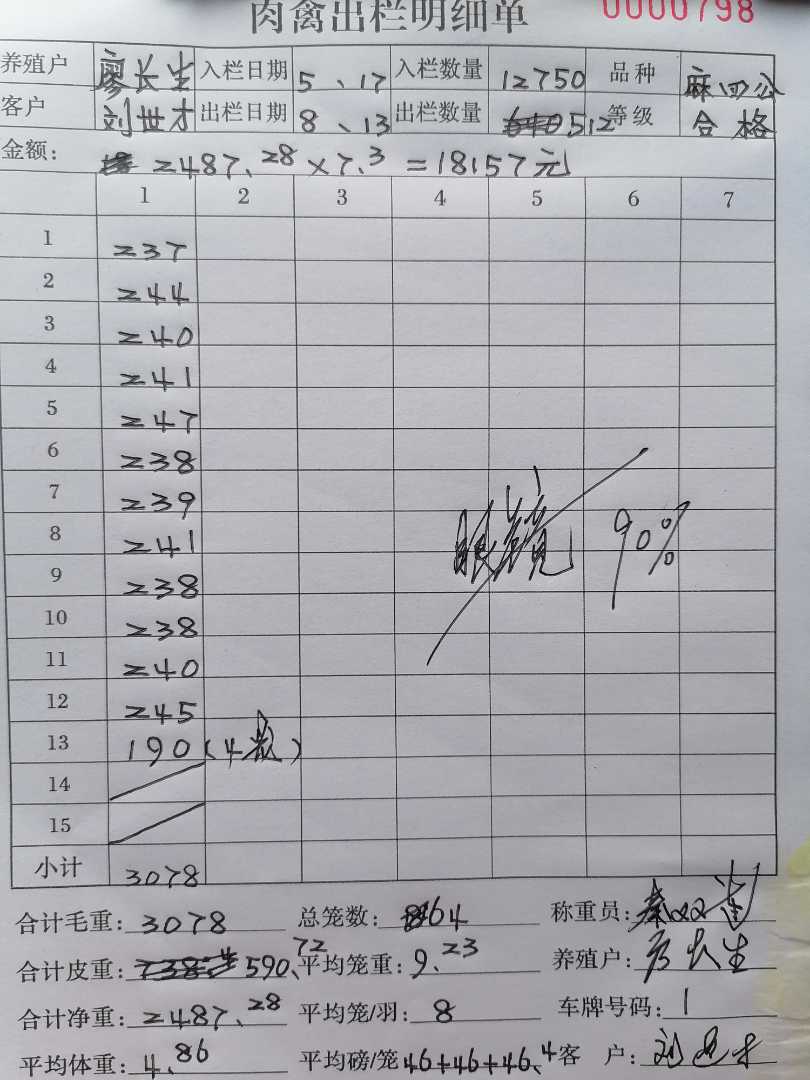 肉禽出栏明细单 0000798
养殖户 廖长生 入栏日期 5、17 入栏数量 12750 品种 麻四公
客户 刘世才 出栏日期 8、13 出栏数量 512 等级 合格
金额: 2487.28×7.3=18157元
1 2 3 4 5 6 7
1 237
2 244
3 240
4 241
5 247
6 238
7 239
8 241
眼镜 90%
9 238
10 238
11 240
12 245
13 190(4数)
14
15
小计 3078
合计毛重: 3078 总笼数: 64 称重员: 秦双
合计皮重: 590.72 平均笼重: 9.23 养殖户: 廖长生
合计净重: 2487.28 平均笼/羽: 8 车牌号码: 1
平均体重: 4.86 平均磅/笼 46+46+46.4 客 户: 刘世才